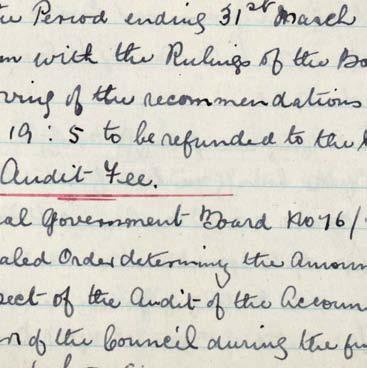 the Period ending 31st March
with the Rulings of the Bo
ving of the recommendations
19 : 5 to be refunded to the
Audit Fee.
al Government Board No 76/
aled Order determing the Amoun
pect of the Audit of the Accoun
of the Council during the